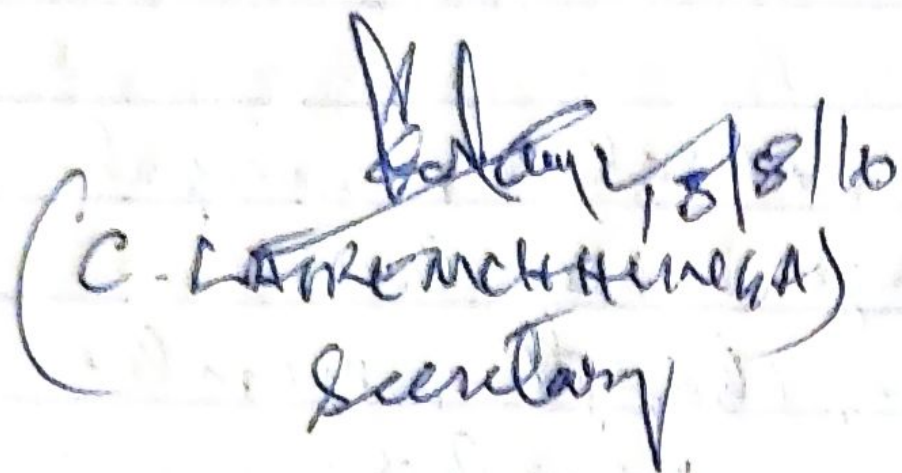 18/8/10
(C. LALREMCHHUNGA)
Secretary